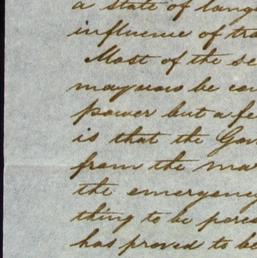 a state of lang
influence of tra
Most of the se
may now be con
power but a fe
is that the Gov
from the ma
the emergency
thing to be perce
has proved to be